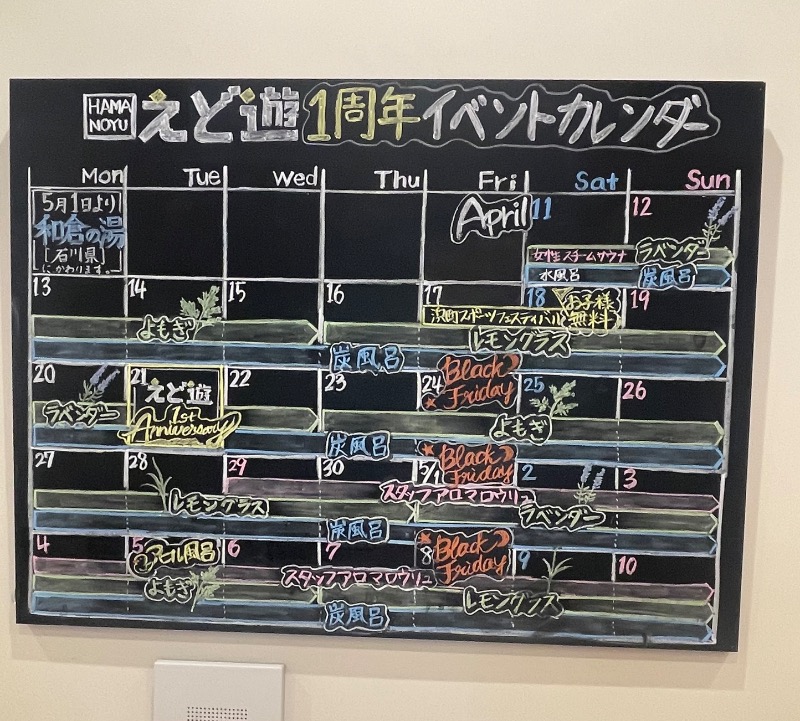 HAMA NOYU えど遊 1周年イベントカレンダー
Mon Tue Wed Thu Fri Sat Sun
5月1日より
和倉の湯
[石川県]
にかわります。
April
11 12
女性スチームサウナ ラベンダー
水風呂 炭風呂
13 14 15 16 17 18 19
お子様
無料
浜町スポーツフェスティバル
よもぎ レモングラス
炭風呂
20 21 22 23 24 25 26
Black Friday
えど遊
1st
Anniversary
ラベンダー よもぎ
炭風呂
27 28 29 30 5/1 2 3
Black Friday
スタッフアロマロウリュ
レモングラス ラベンダー
炭風呂
4 5 6 7 8 9 10
Black Friday
スタッフアロマロウリュ
よもぎ レモングラス
炭風呂